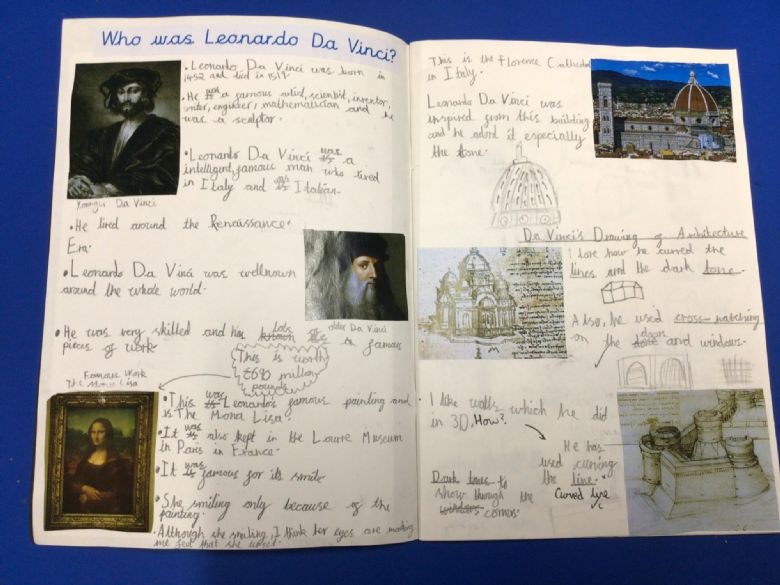 Who was Leonardo Da Vinci?
• Leonardo Da Vinci was born in
1452 and died in 1519.
• He was a famous artist, scientist, inventor,
writer, engineer, mathematician and he
was a sculptor.
• Leonardo Da Vinci was a
intelligent, famous man who lived
in Italy and was Italian.
Younger Da Vinci
• He lived around the Renaissance
Era.
• Leonardo Da Vinci was wellknown
around the whole world.
older Da Vinci
• He was very skilled and has lots of famous
pieces of work
This is worth
£670 million
pounds
Famous Work
The Mona Lisa
• This was Leonardo's famous painting and
is The Mona Lisa.
• It was also kept in the Louvre Museum
in Paris in France.
• It was famous for its smile
• She smiling only because of the
painting.
• Although she smiling, I think her eyes are making
me feel that she upset.
This is the Florence Cathedral
in Italy.
Leonardo Da Vinci was
inspired from this building
and he adord it especially
the tone.
Da Vinci's Drawing of Architecture
I love how he curved the
lines and the dark tone.
Also, he used cross-hatching
on the doors and windows.
• I like walls which he did
in 3D. How?
He has
used curving
the line.
Curved line
Dark tones to
show through the
windows corners.